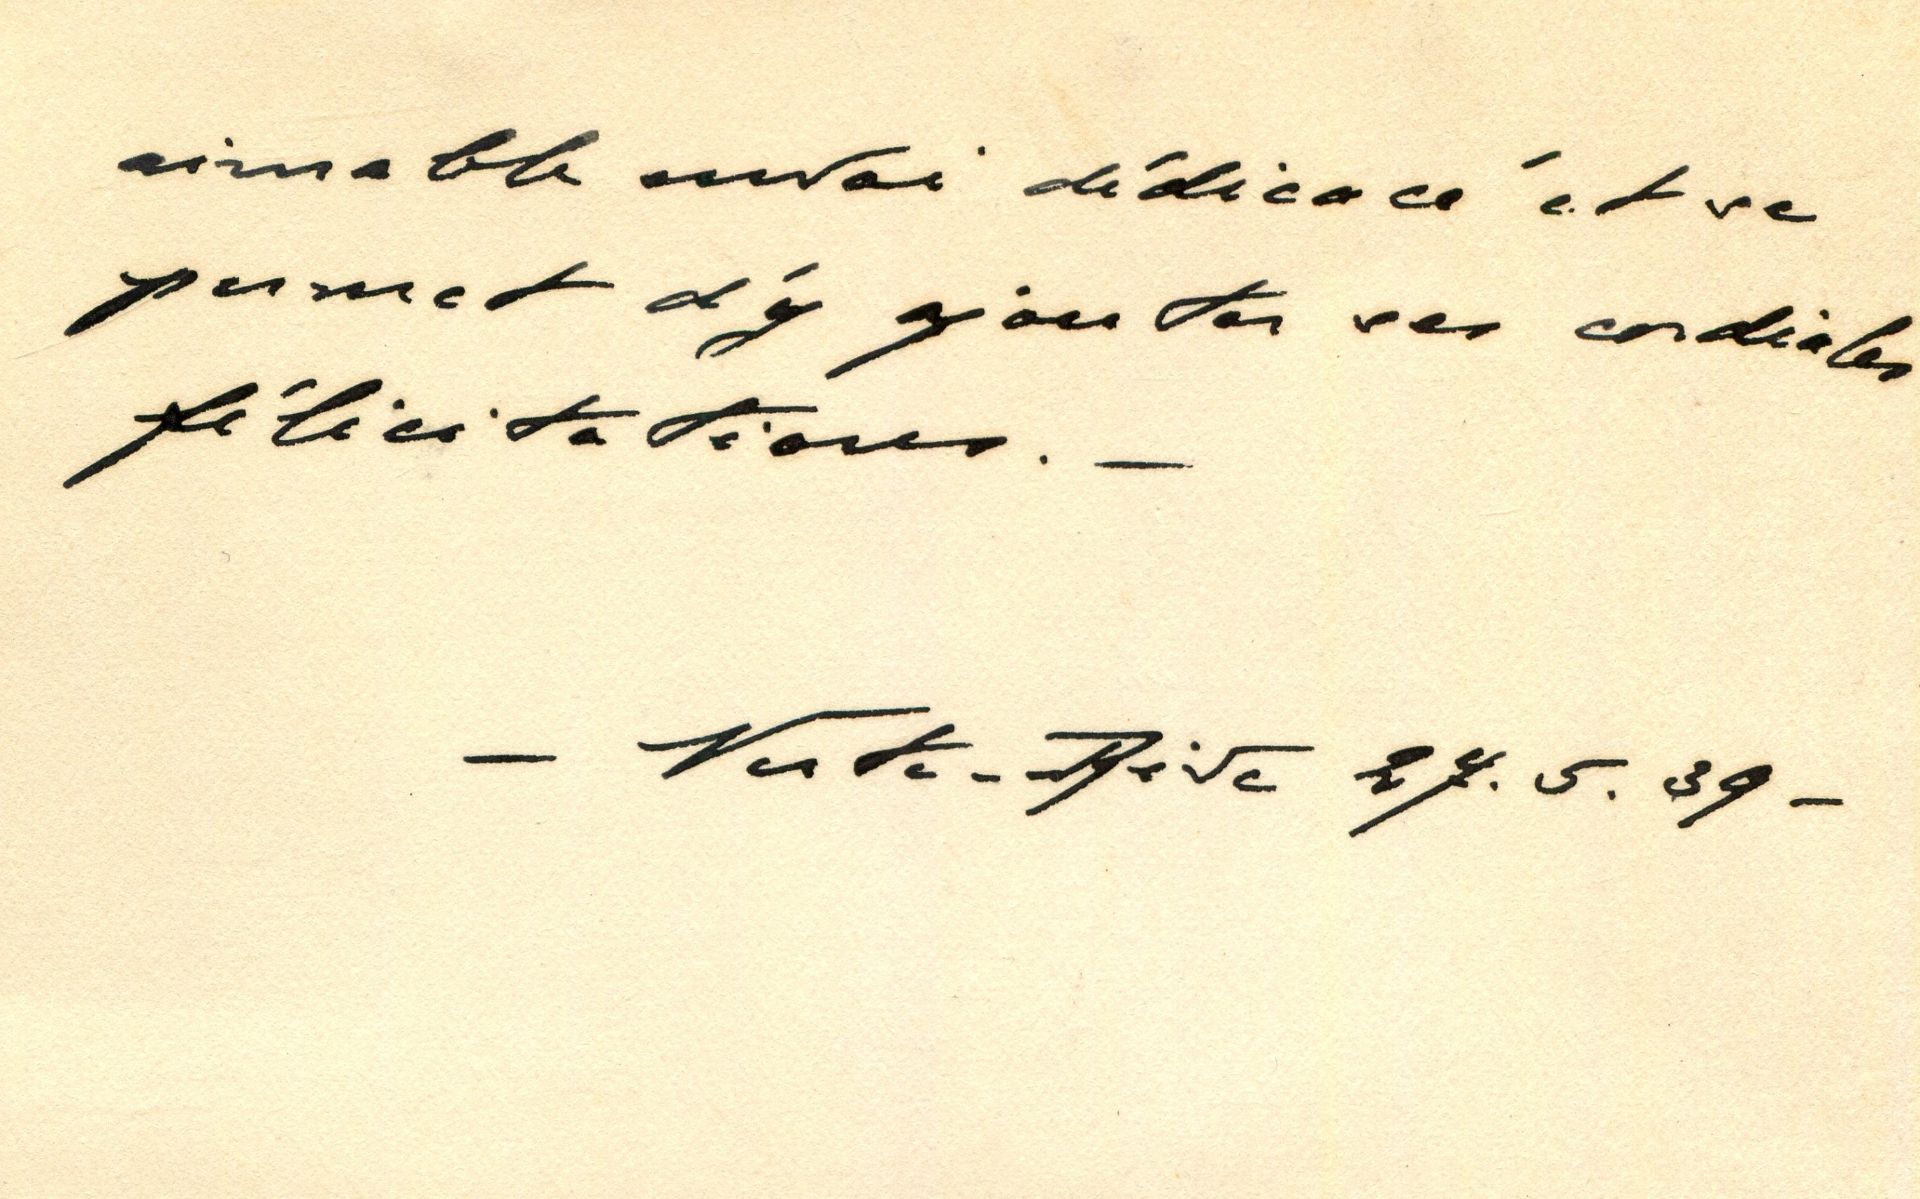 aimable envoi dédicacé et se
permet d'y ajouter ses cordiales
félicitations. —
— Verte-Rive 27.5.39 —